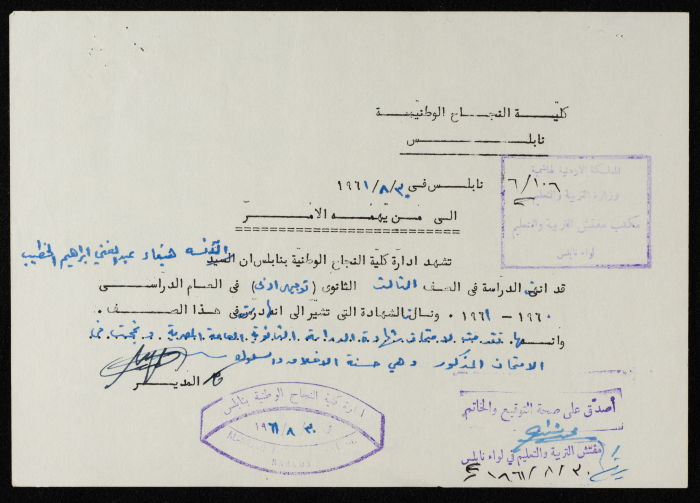 كليـة النجـاح الوطنيـة
نابلـس
المملكة الاردنية الهاشمية
وزارة التربية والتعليم
مكتب مفتش التربية والتعليم
لواء نابلس
٦/١٠٦
نابلس في ٣٠/٨/١٩٦١
الى من يهمه الامر
تشهد ادارة كلية النجاح الوطنية بنابلس ان السيد الآنسه هيفاء عبد الغني ابراهيم الخطيب
قد انهت الدراسة في الصف الثالث الثانوي (توجيهي ادبي) في العام الدراسي
١٩٦٠ - ١٩٦١ ونالت الشهادة التي تشير الى انها درست في هذا الصف.
وانها تقدمت لامتحان شهادة الدراسة الثانوية العامة المصرية و نجحت في
الامتحان المذكور وهي حسنة الاخلاق والسلوك
المديـر
ادارة كلية النجاح الوطنية بنابلس
٣٠ ٨ ١٩٦١
NABLUS
أصدق على صحة التوقيع والخاتم
مفتش التربية والتعليم في لواء نابلس
٣٠/٨/١٩٦١